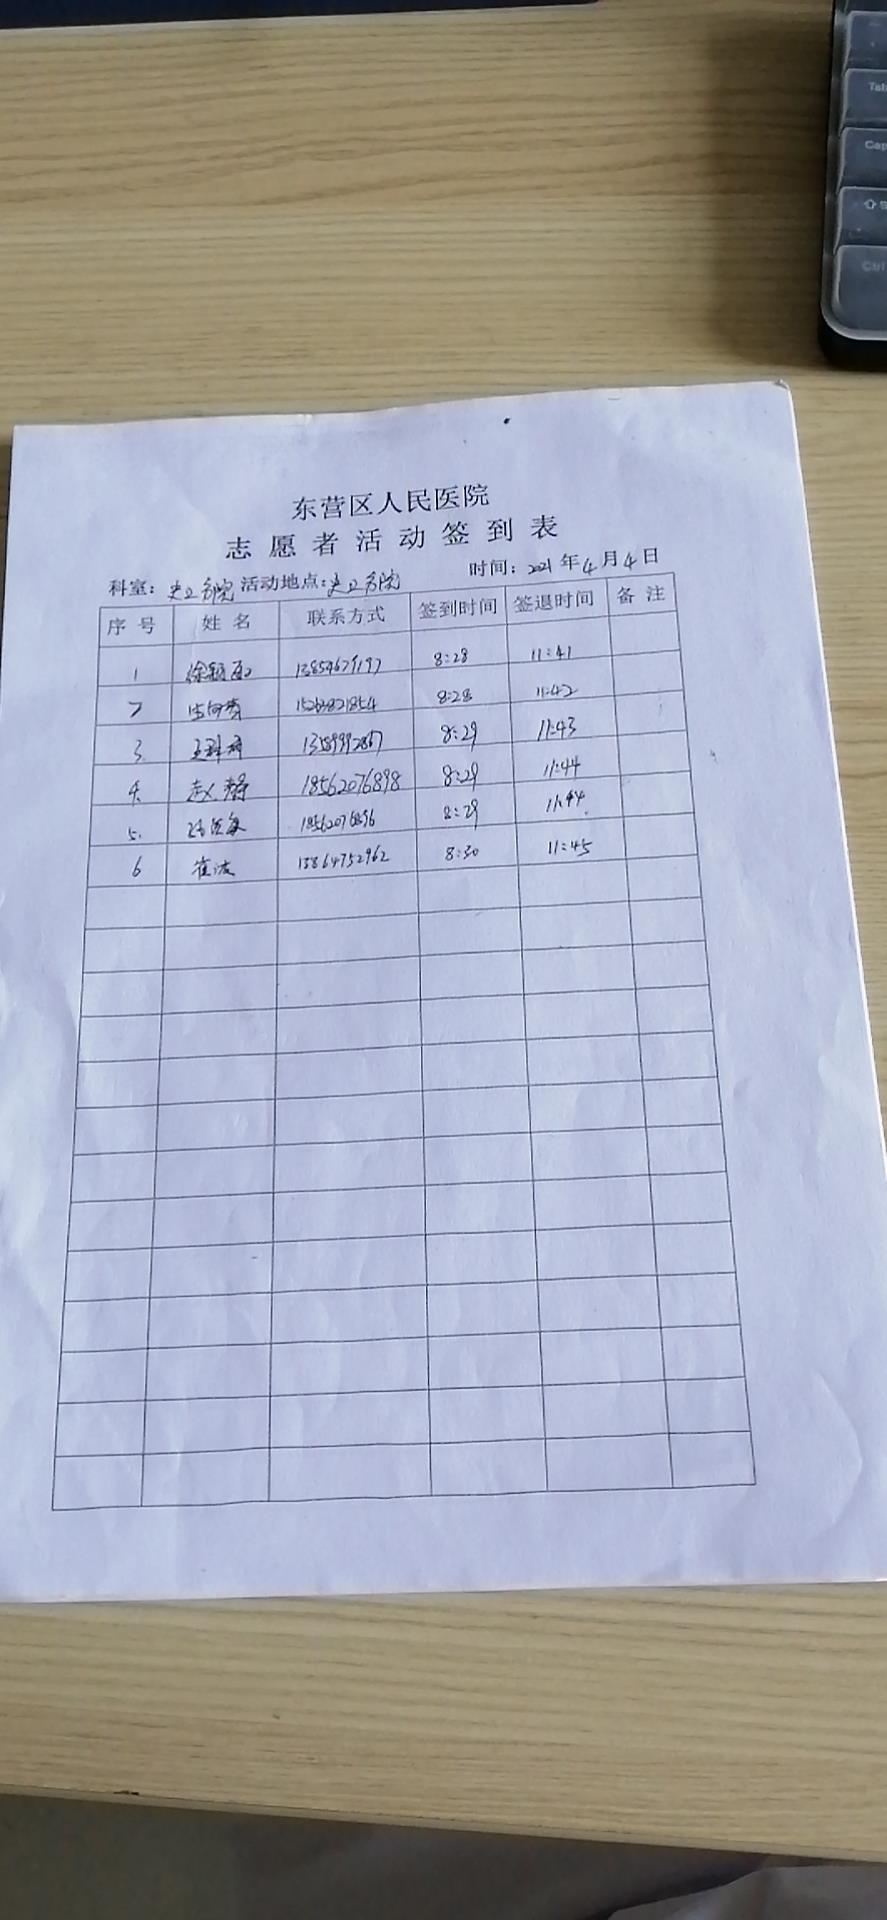 东营区人民医院
志愿者活动签到表
科室: 史口分院 活动地点: 史口分院 时间: 2021年4月4日
序号 姓名 联系方式 签到时间 签退时间 备注
1 8:28 11:41
2 15263821854 8:28 11:42
3. 王科 8:29 11:43
4. 赵静 18562076898 8:29 11:44
5. 18562076896 8:29 11:44
6 崔洁 13864752962 8:30 11:45
Tab
Cap
Ctrl